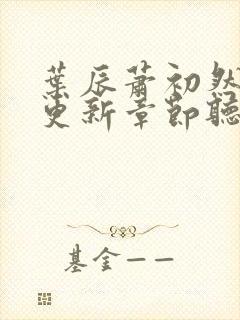 葉辰蕭初然
更新章節聽
基金——